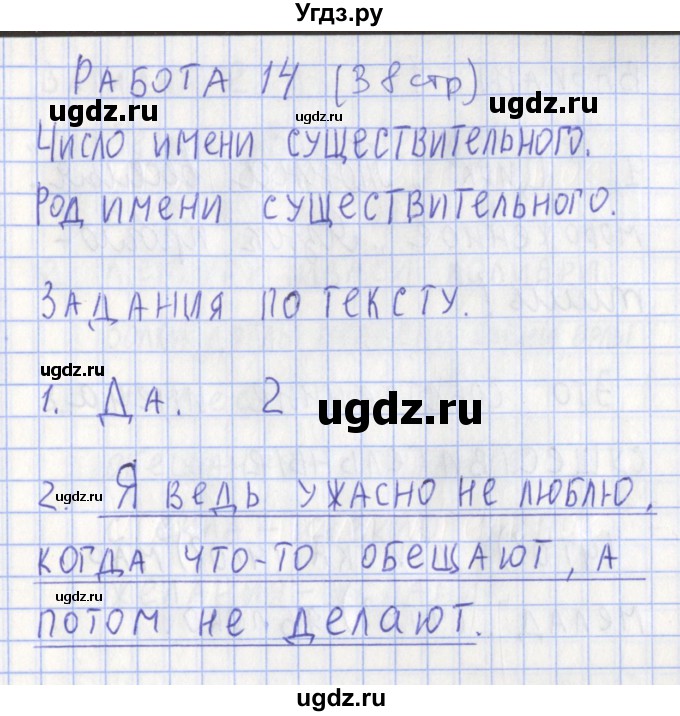 Угдз.ру
РАБОТА 14 (38 стр)
ugdz.ru ugdz.ru
ЧИСЛО ИМЕНИ СУЩЕСТВИТЕЛЬНОГО.
РОД ИМЕНИ СУЩЕСТВИТЕЛЬНОГО.
ЗАДАНИЯ ПО ТЕКСТУ.
ugdz.ru
1. ДА. 2
ugdz.ru
2. Я ВЕДЬ УЖАСНО НЕ ЛЮБЛЮ,
ugdz.ru
КОГДА ЧТО-ТО ОБЕЩАЮТ, А
ugdz.ru
ПОТОМ НЕ ДЕЛАЮТ.
ugdz.ru